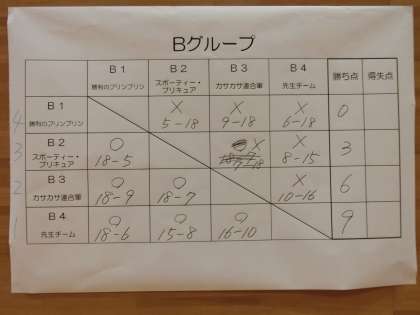 Bグループ
B1 B2 B3 B4 勝ち点 得失点
勝利のプリンプリン スポーティー・プリキュア カサカサ連合軍 先生チーム
4 B1 勝利のプリンプリン × 5-18 × 9-18 × 6-18 0
3 B2 スポーティー・プリキュア ○ 18-5 × 7-18 × 8-15 3
2 B3 カサカサ連合軍 ○ 18-9 ○ 18-7 × 10-16 6
1 B4 先生チーム ○ 18-6 ○ 15-8 ○ 16-10 9